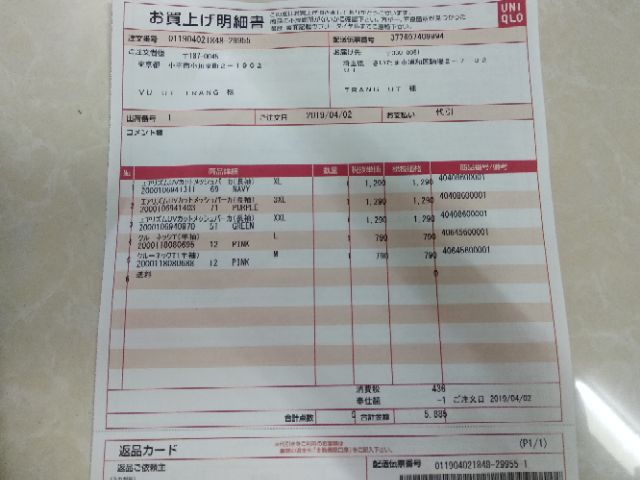 お買上げ明細書
UNI
QLO
注文番号 011904021848-29955
配送伝票番号 377807409994
ご注文者様 〒187-0045
お届け先
東京都
VU UT TRANG 様
TRANG UT 様
出荷番号 1 ご注文日 2019/04/02 お支払い 代引
コメント欄
No. 商品詳細 数量 税抜単価 税抜価格 商品番号/備考
1 エアリズムUVカットメッシュパーカ(長袖) XL 1 1,290 1,290 40408600001
2000106941311 69 NAVY
2 エアリズムUVカットメッシュパーカ(長袖) 3XL 1 1,290 1,290 40408600001
2000106941403 71 PURPLE
3 エアリズムUVカットメッシュパーカ(長袖) XXL 1 1,290 1,290 40408600001
2000106940970 57 GREEN
4 クルーネックT(半袖) L 1 790 790 40645600001
2000118080695 12 PINK
5 クルーネックT(半袖) M 1 790 790 40645600001
2000118080688 12 PINK
6 送料 0
消費税 436
-1 ご注文日 2019/04/02
合計点数 5 合計金額 5,885
返品カード
(P1/1)
返品ご依頼主
配送伝票番号 011904021848-29955 1